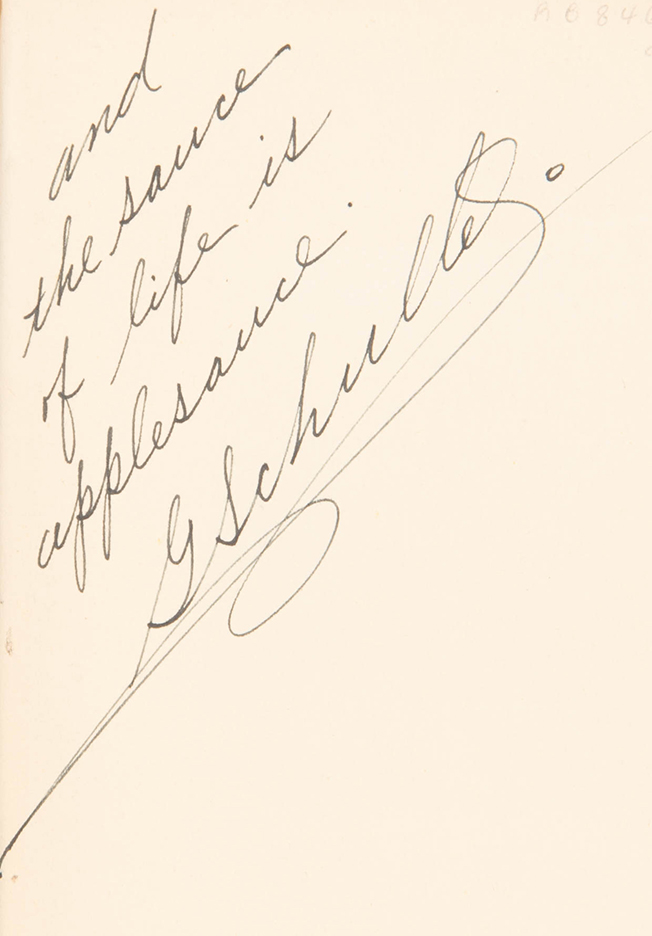 and
the sauce
of life is
applesauce.
G Schultz.